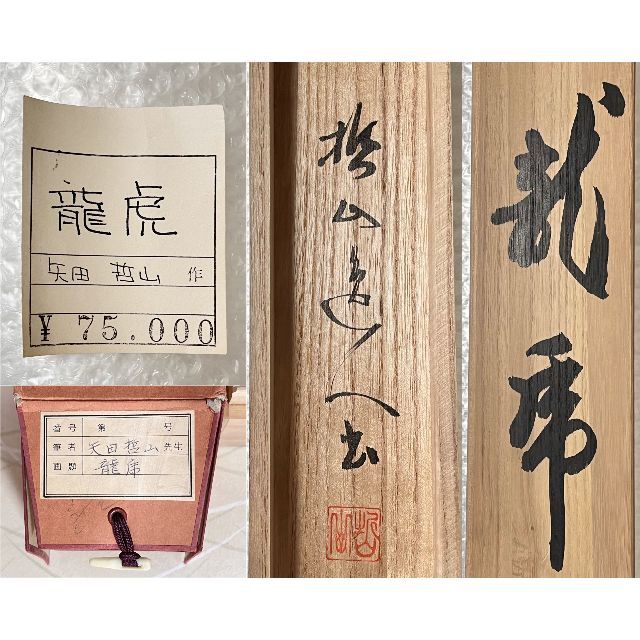 龍虎
矢田 哲山 作
¥ 75.000
番号 第 号
筆者 矢田哲山 先生
画題 龍虎
哲山
龍虎
哲山